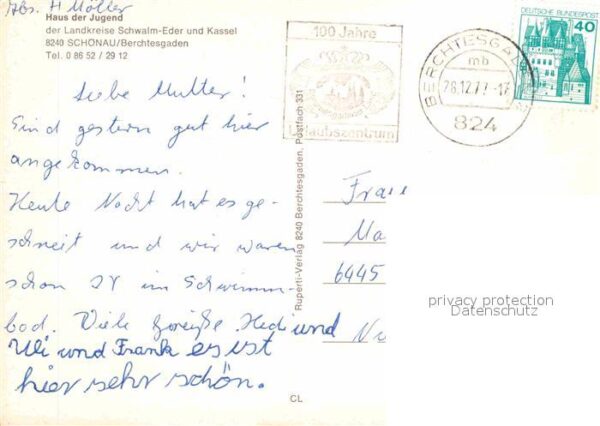 Abs. H Möller
Haus der Jugend
der Landkreise Schwalm-Eder und Kassel
8240 SCHÖNAU/Berchtesgaden
Tel. 0 86 52 / 29 12
Liebe Mutter!
Sind gestern gut hier
angekommen.
Heute Nacht hat es ge-
schneit und wir waren
schon im Schwimm-
bad. Viele Grüße Hedi und
Uli und Frank es ist
hier sehr schön.
Ruperti-Verlag 8240 Berchtesgaden, Postfach 331
CL
100 Jahre
Urlaubszentrum
BERCHTESGADEN
mb
28.12.77-17
824
DEUTSCHE BUNDESPOST
40
Frau
Ma
6445
privacy protection
Datenschutz